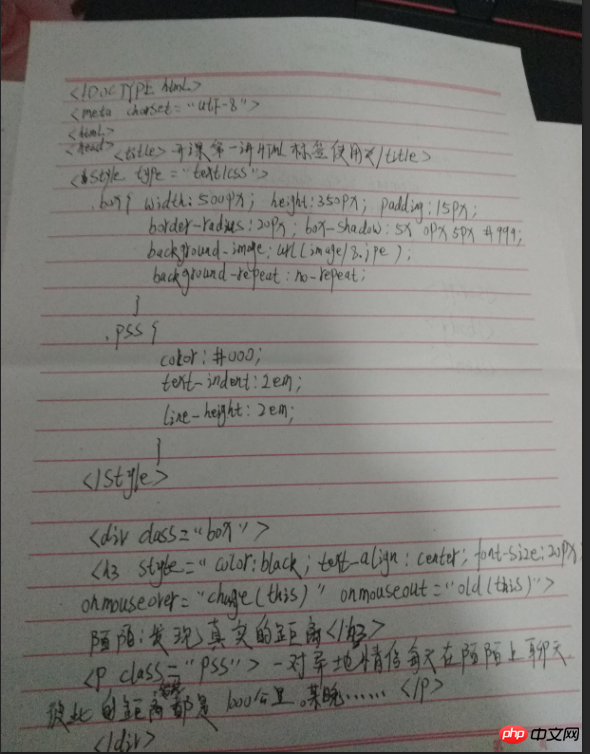 <!DOCTYPE html>
<meta charset="utf-8">
<html>
<head>
<title>开课第一讲HTML标签使用</title>
<style type="text/css">
.box{ width:500px; height:350px; padding:15px;
border-radius:20px; box-shadow:5x 0px 5px #999;
background-image:url(image/8.jpe);
background-repeat:no-repeat;
}
.pss{
color:#000;
text-indent:2em;
line-height:2em;
}
</style>
<div class="box">
<h3 style="color:black; text-align:center; font-size:20px;
onmouseover="change(this)" onmouseout="old(this)">
陌陌:发现真实的距离</h3>
<p class="pss">一对异地情侣每天在陌陌上聊天
彼此的距离都是1000公里。某晚……</p>
</div>
php 中文网